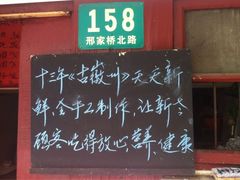 158
邢家桥北路
十三年《古徽州》天天新
鲜、全手工制作，让新老
顾客吃得放心、营养、健康